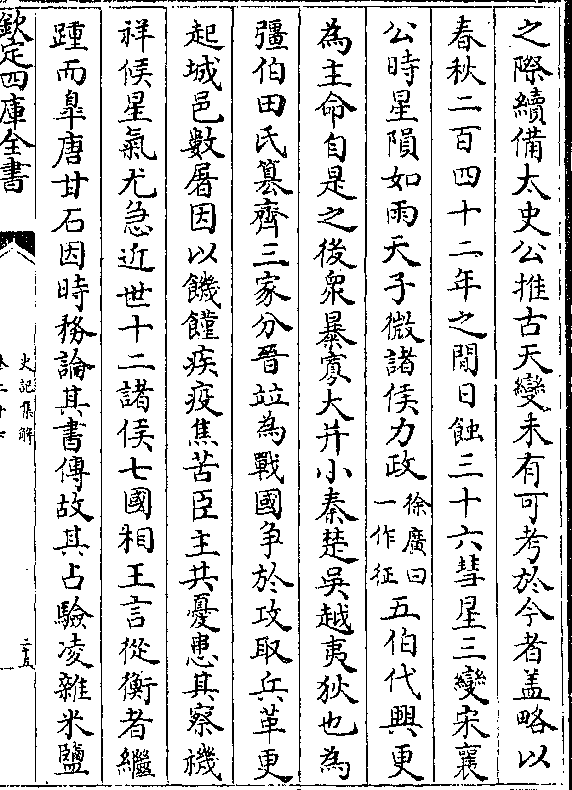 之際續備太史公推古天變未有可考於今者蓋略以
春秋二百四十二年之間日蝕三十六彗星三變宋襄
公時星隕如雨天子微諸侯力政
徐廣曰
一作征
五伯代興更
為主命自是之後衆暴寡大并小秦楚吳越夷狄也為
彊伯田氏簒齊三家分晉竝為戰國争於攻取兵革更
起城邑數屠因以饑饉疾疫焦苦臣主共憂患其察禨
祥候星氣尤急近世十二諸侯七國相王言從衡者繼
踵而臯唐甘石因時務論其書傳故其占驗凌雜米鹽
欽定四庫全書
史記集解
卷二十七
二五